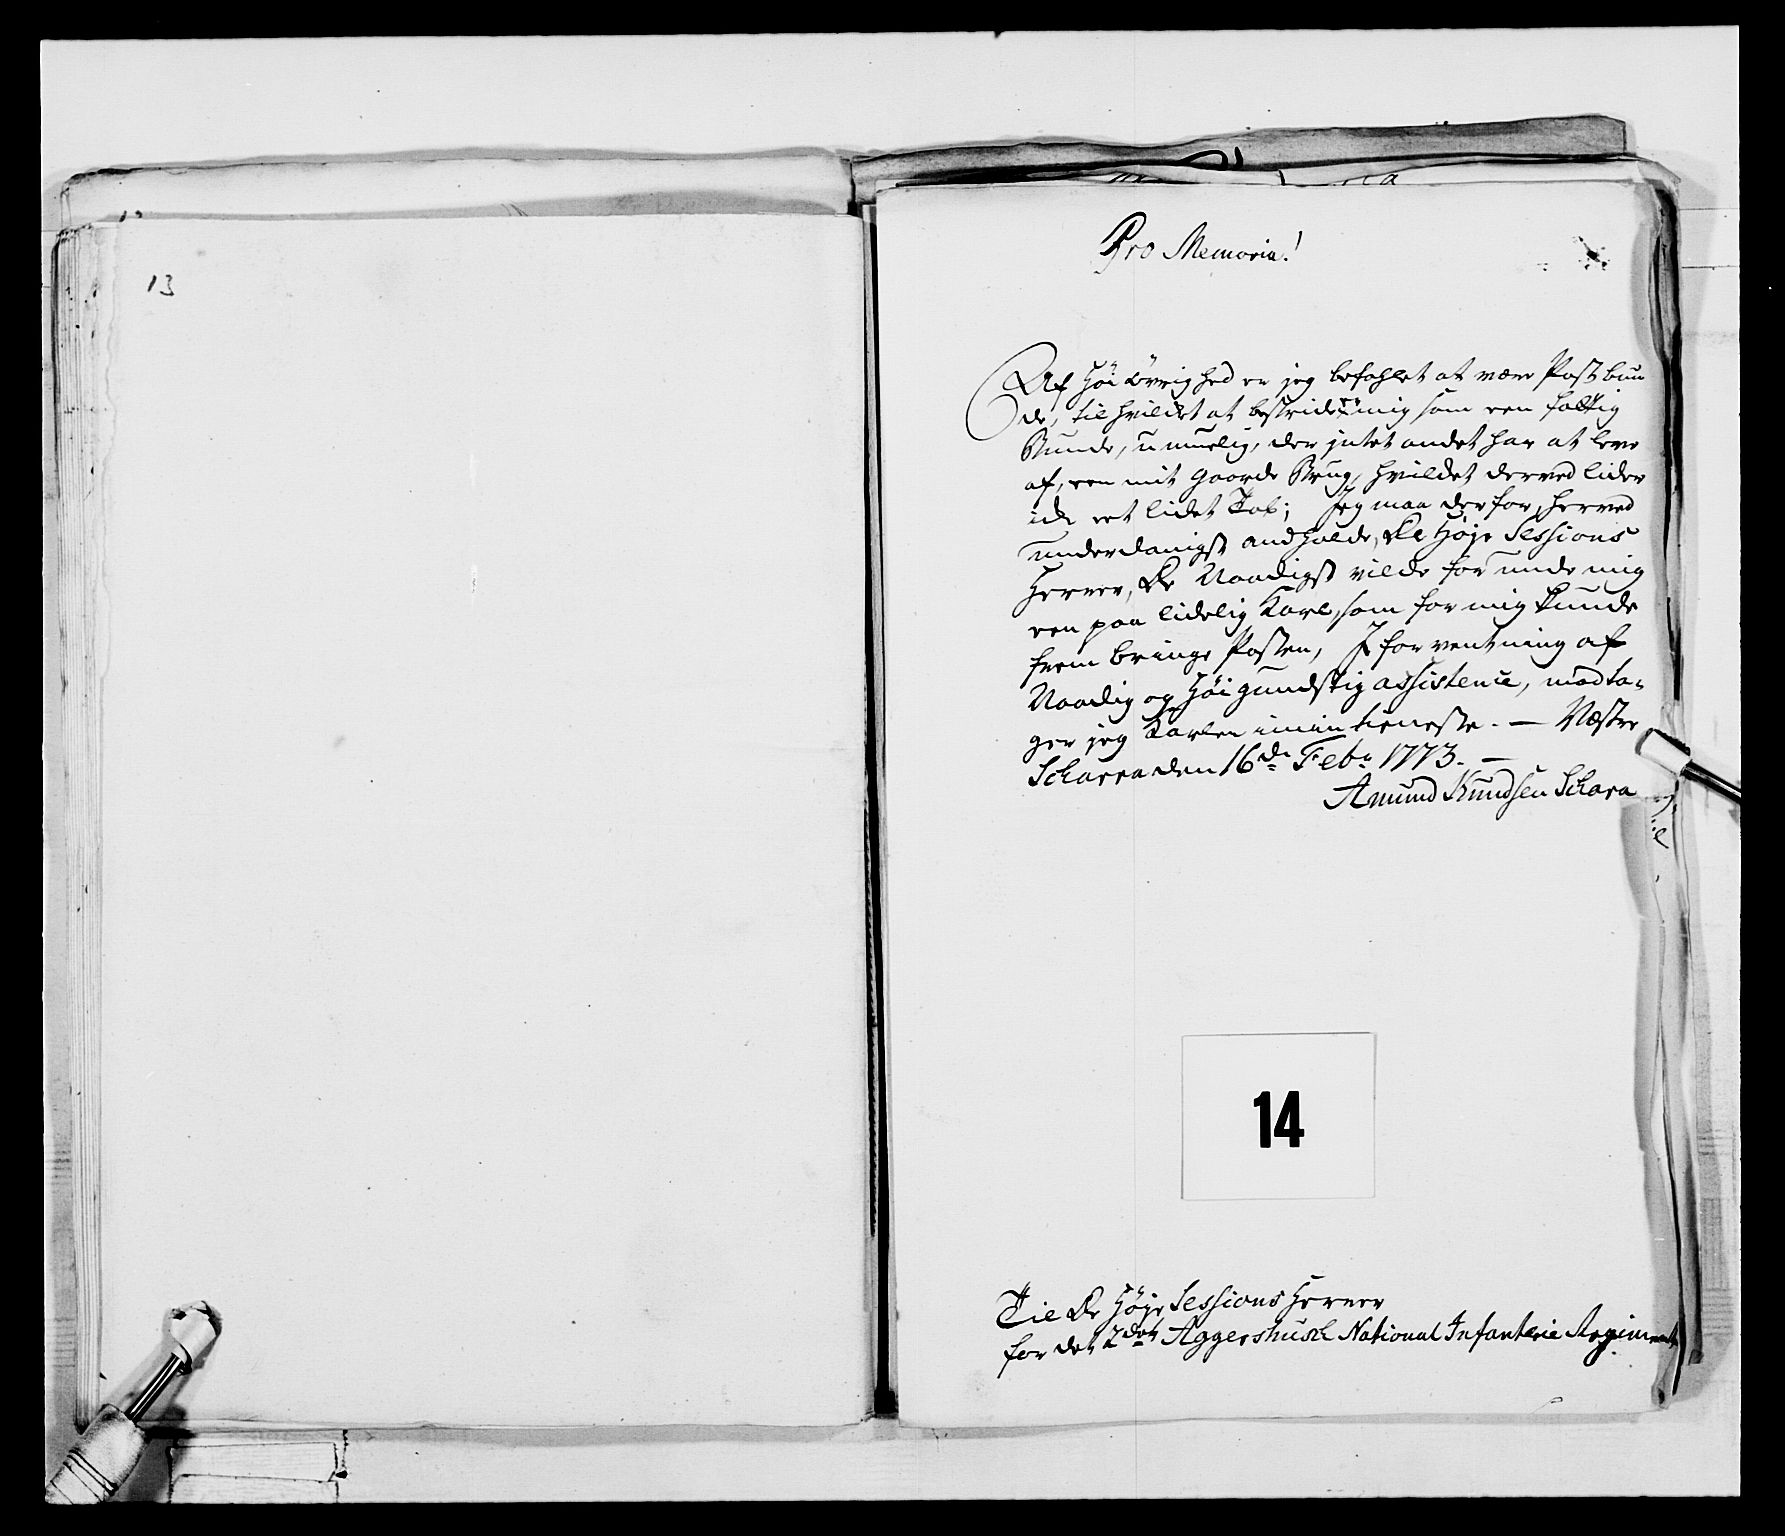 13
Pro Memoria!
Af Høi Øvrighed er jeg befahlet at være Postbun
de, til hvilket at bestride er mig som een fattig
Bunde, umuelig, der jntet andet har at leve
af, een mit Gaarde Brug, hvilket derved lider
ick eet lidet Tab; Jeg maa derfor, herved
underdanigst andholde, De Høje Sessions
Herrer, De Naadigst vilde forunde mig
een paalidelig Karl, som for mig kunde
frem bringe Posten, J forventning af
Naadig og Høigundstig assistence, modta-
ger jeg Karlen i min tieneste. — Væstre
Scharra den 16de Feb: 1773. —
Amund Knudsen Schara
14
Til De Høje Sessions Herrer
for det 2det Aggershusck National Infanterie Regiment